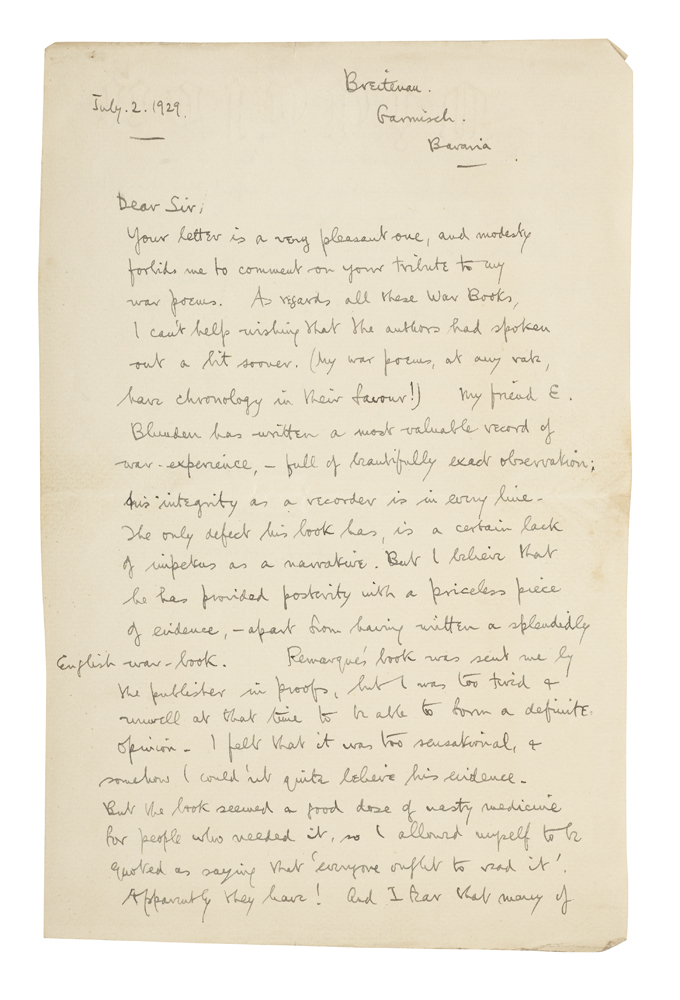 Breitenau.
July. 2. 1929.
Garmisch.
Bavaria
Dear Sir;
Your letter is a very pleasant one, and modesty
forbids me to comment on your tribute to my
war poems. As regards all these War Books,
I can't help wishing that the authors had spoken
out a bit sooner. (My war poems, at any rate,
have chronology in their favour!) My friend E.
Blunden has written a most valuable record of
war-experience, – full of beautifully exact observation;
his integrity as a recorder is in every line –
The only defect his book has, is a certain lack
of impetus as a narrative. But I believe that
he has provided posterity with a priceless piece
of evidence, – apart from having written a splendidly
English war-book. Remarque's book was sent me by
the publisher in proofs, but I was too tired &
unwell at that time to be able to form a definite
opinion – I felt that it was too sensational, &
somehow I could'nt quite believe his evidence –
But the book seemed a good dose of nasty medicine
for people who needed it, so I allowed myself to be
quoted as saying that 'everyone ought to read it'.
Apparently they have! And I fear that many of